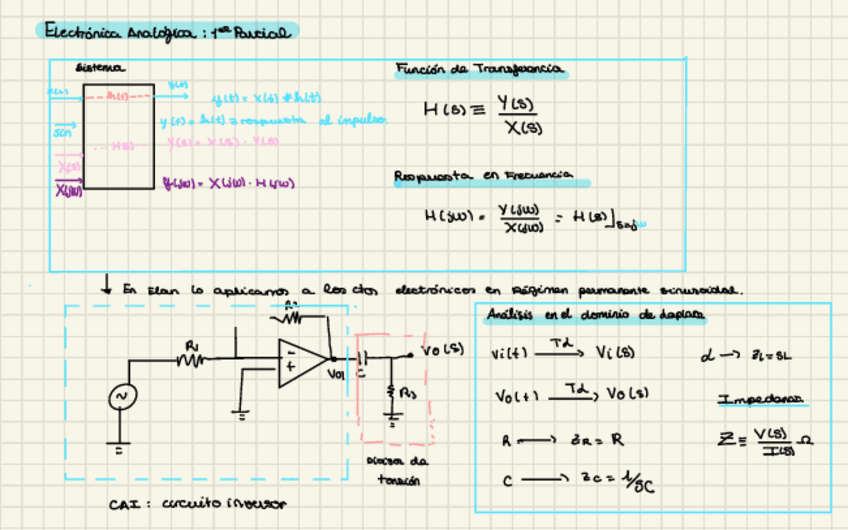 Electrónica Analógica : 1er Parcial
Sistema
h(t)
y(t) = x(t) * h(t)
y(t) = h(t) ≡ respuesta al impulso
H(s)
Y(s) = X(s) · Y(s)
X(s)
X(jω)
Y(jω) = X(jω) · H(jω)
Función de Transferencia
H(s) ≡ Y(s)/X(s)
Respuesta en Frecuencia
H(jω) = Y(jω)/X(jω) = H(s)]s=jω
↓ En Elan lo aplicamos a los ctos electrónicos en Régimen permanente sinusoidal.
R1
Vo1
C
R3
Vo(s)
Divisor de
tensión
CAI : circuito inversor
Análisis en el dominio de Laplace
Vi(t) → Vi(s)
Vo(t) → Vo(s)
R → ZR = R
C → ZC = 1/SC
L → ZL = SL
Impedancia
Z ≡ V(s)/I(s) Ω